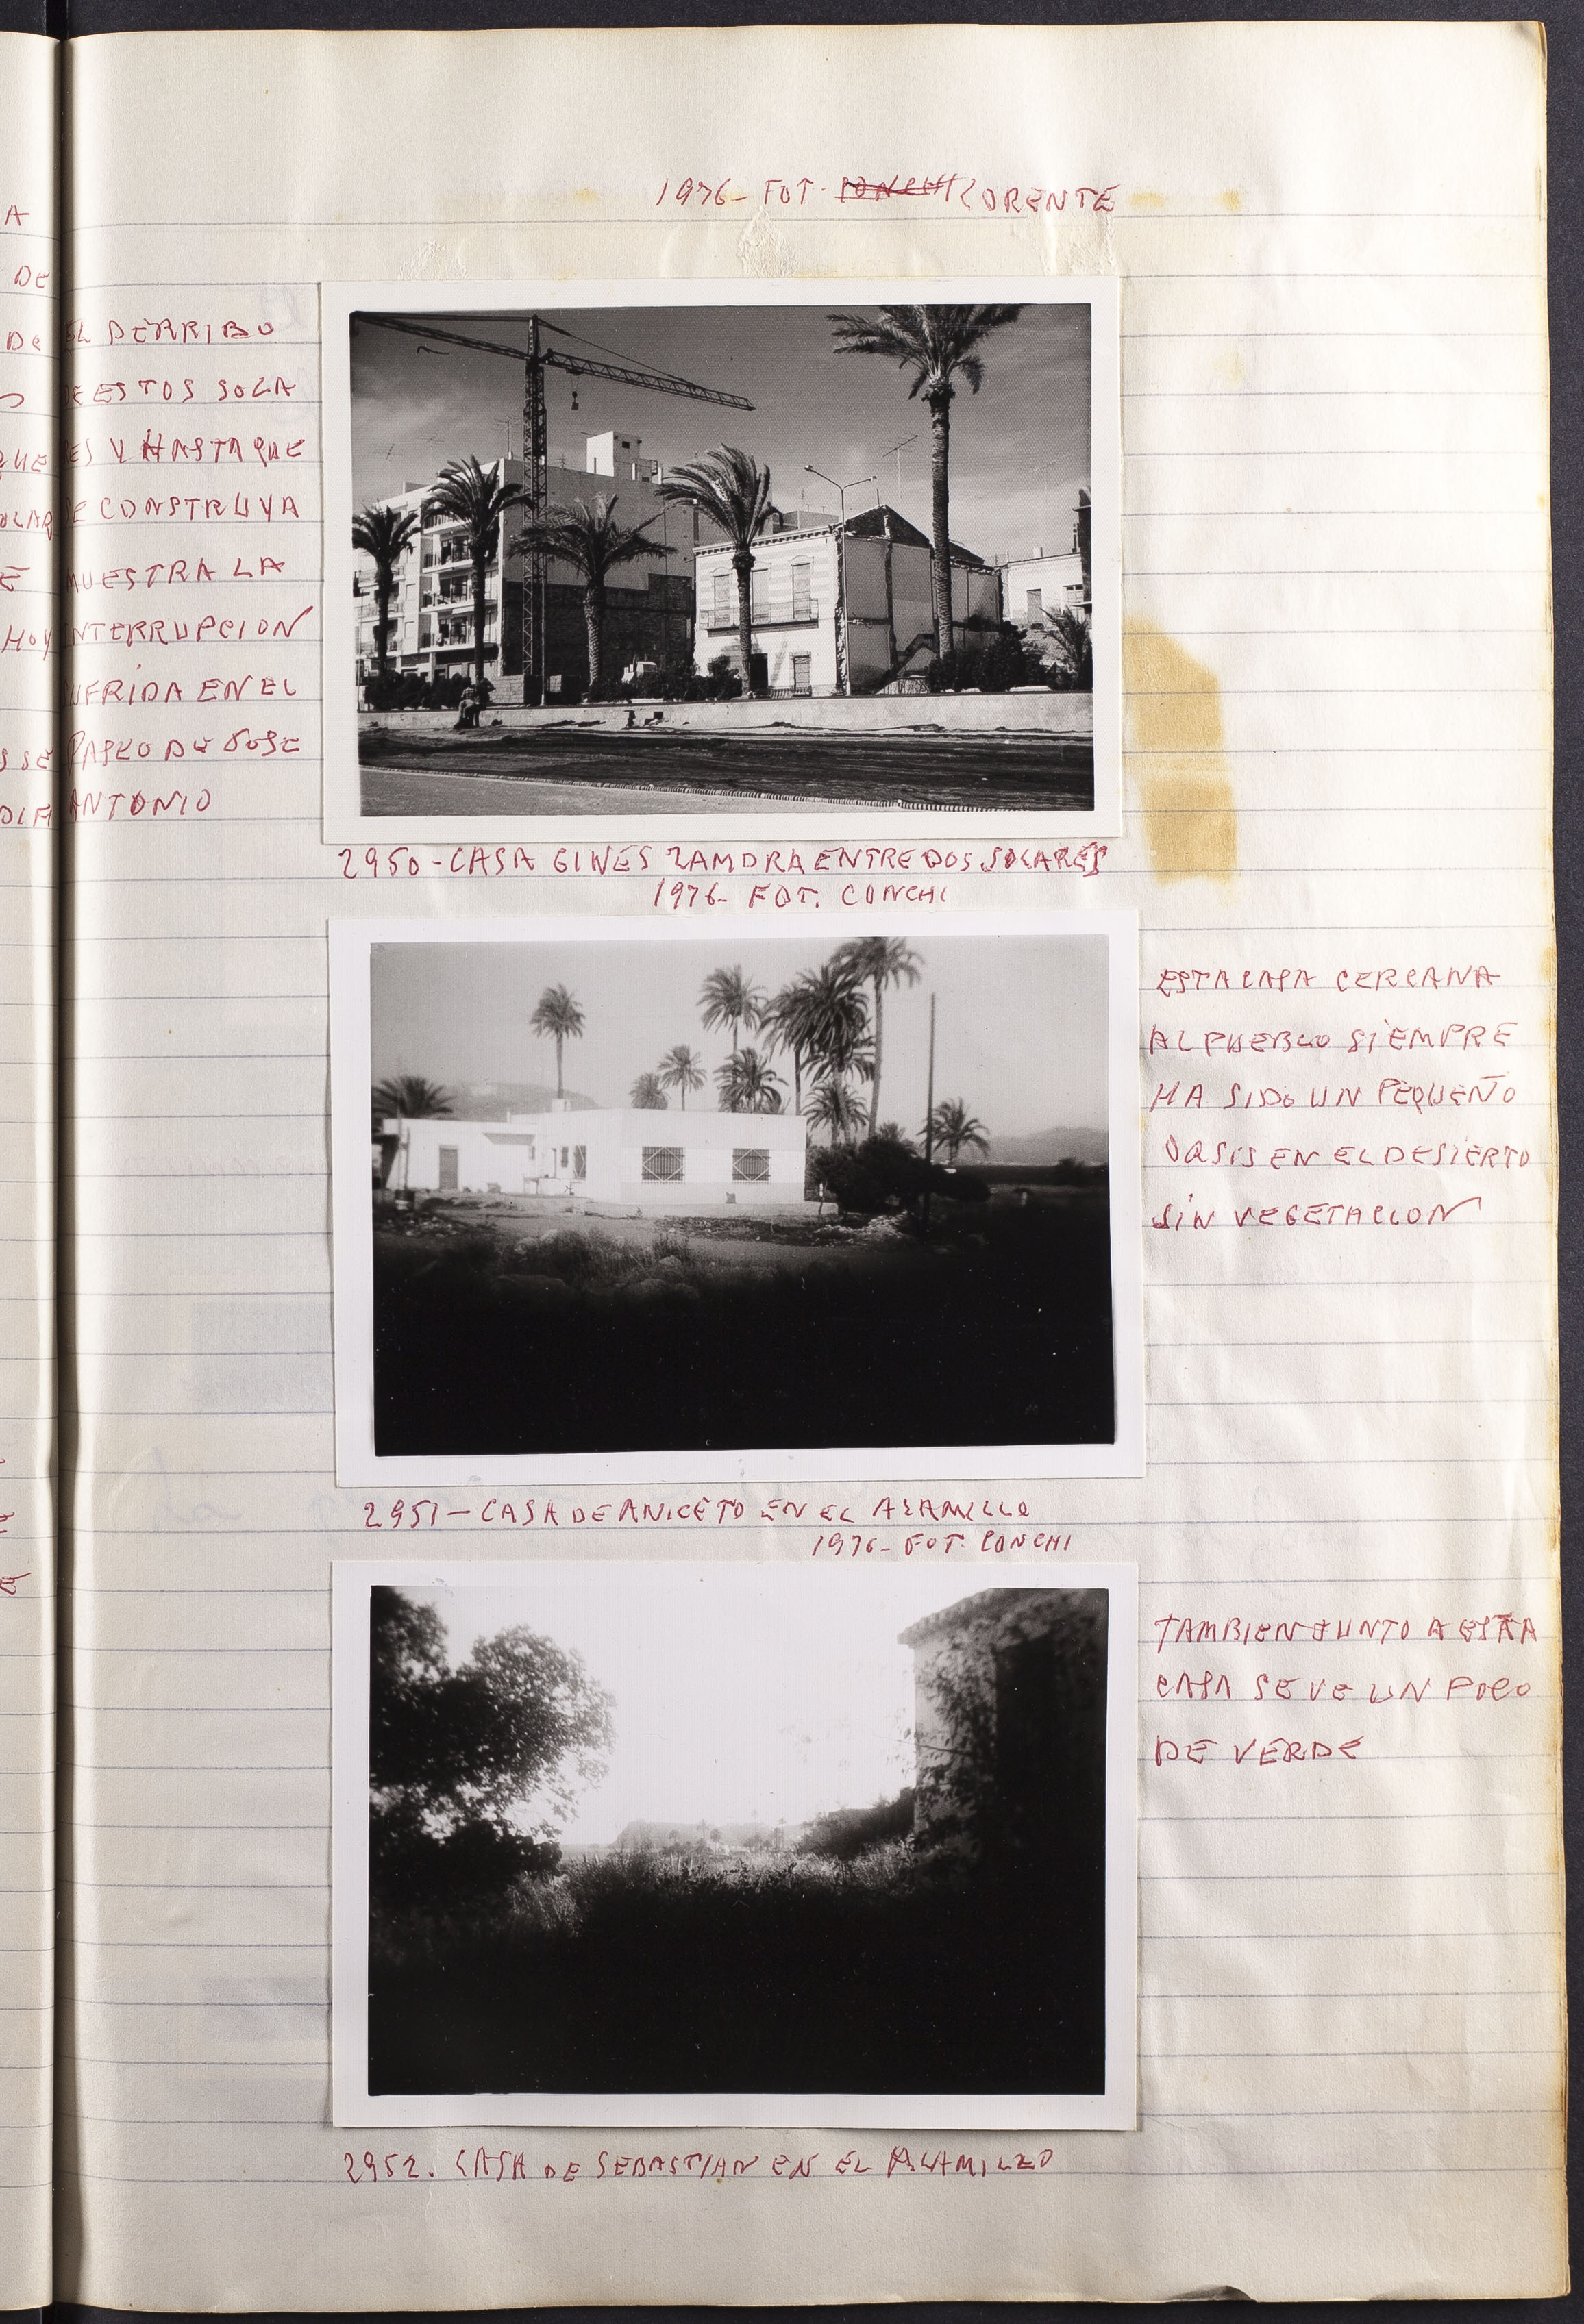 1976- FOT. CONCHI LORENTE
EL DERRIBO
DE ESTOS SOLA
RES Y HASTA QUE
SE CONSTRUYA
MUESTRA LA
INTERRUPCION
SUFRIDA EN EL
PASEO DE JOSE
ANTONIO
2950-CASA GINES ZAMORA ENTRE DOS SOLARES
1976- FOT. CONCHI
ESTA CASA CERCANA
AL PUEBLO SIEMPRE
HA SIDO UN PEQUEÑO
OASIS EN EL DESIERTO
SIN VEGETACION
2951-CASA DE ANICETO EN EL ALAMILLO
1976- FOT. CONCHI
TAMBIEN JUNTO A ESTA
CASA SE VE UN POCO
DE VERDE
2952. CASA DE SEBASTIAN EN EL ALAMILLO
A
DE
DE
QUE
OLAR
E
HOY
S SE